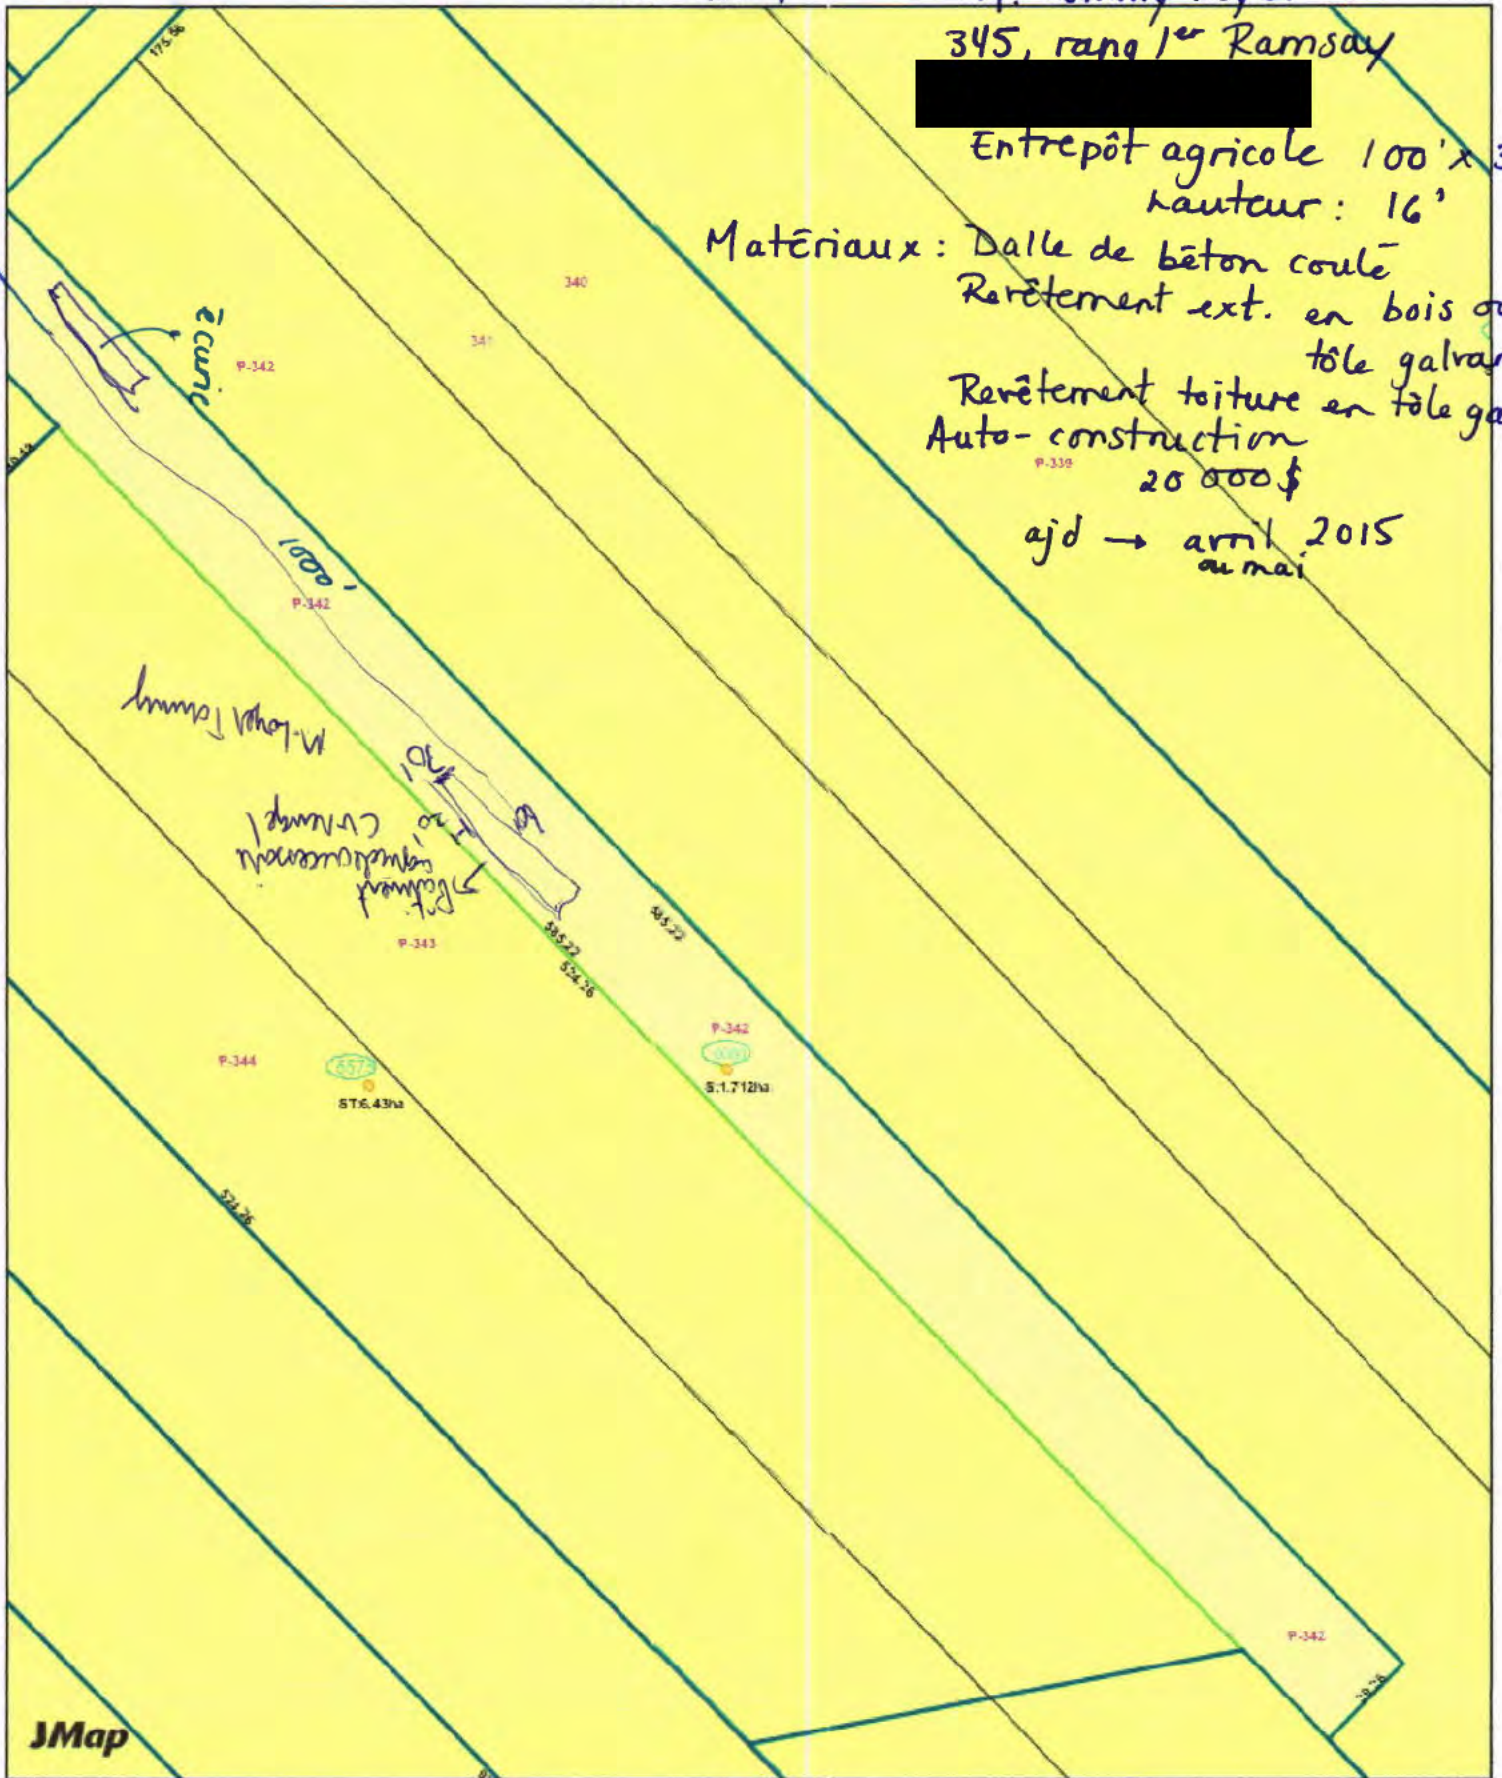 345, rang 1er Ramsay
Entrepôt agricole 100' x 3
hauteur : 16'
Matériaux : Dalle de béton coulé
Revêtement ext. en bois ou
tôle galvan
Revêtement toiture en tôle ga
Auto-construction
20 000 $
ajd → avril 2015
ou mai
175.56
340
341
P-342
écurie
P-339
1000'
P-342
30'
20'
Bâtiment
P-343
585.22
585.22
524.26
P-342
S:1.712ha
P-344
6573
ST:6.43ha
524.26
P-342
JMap